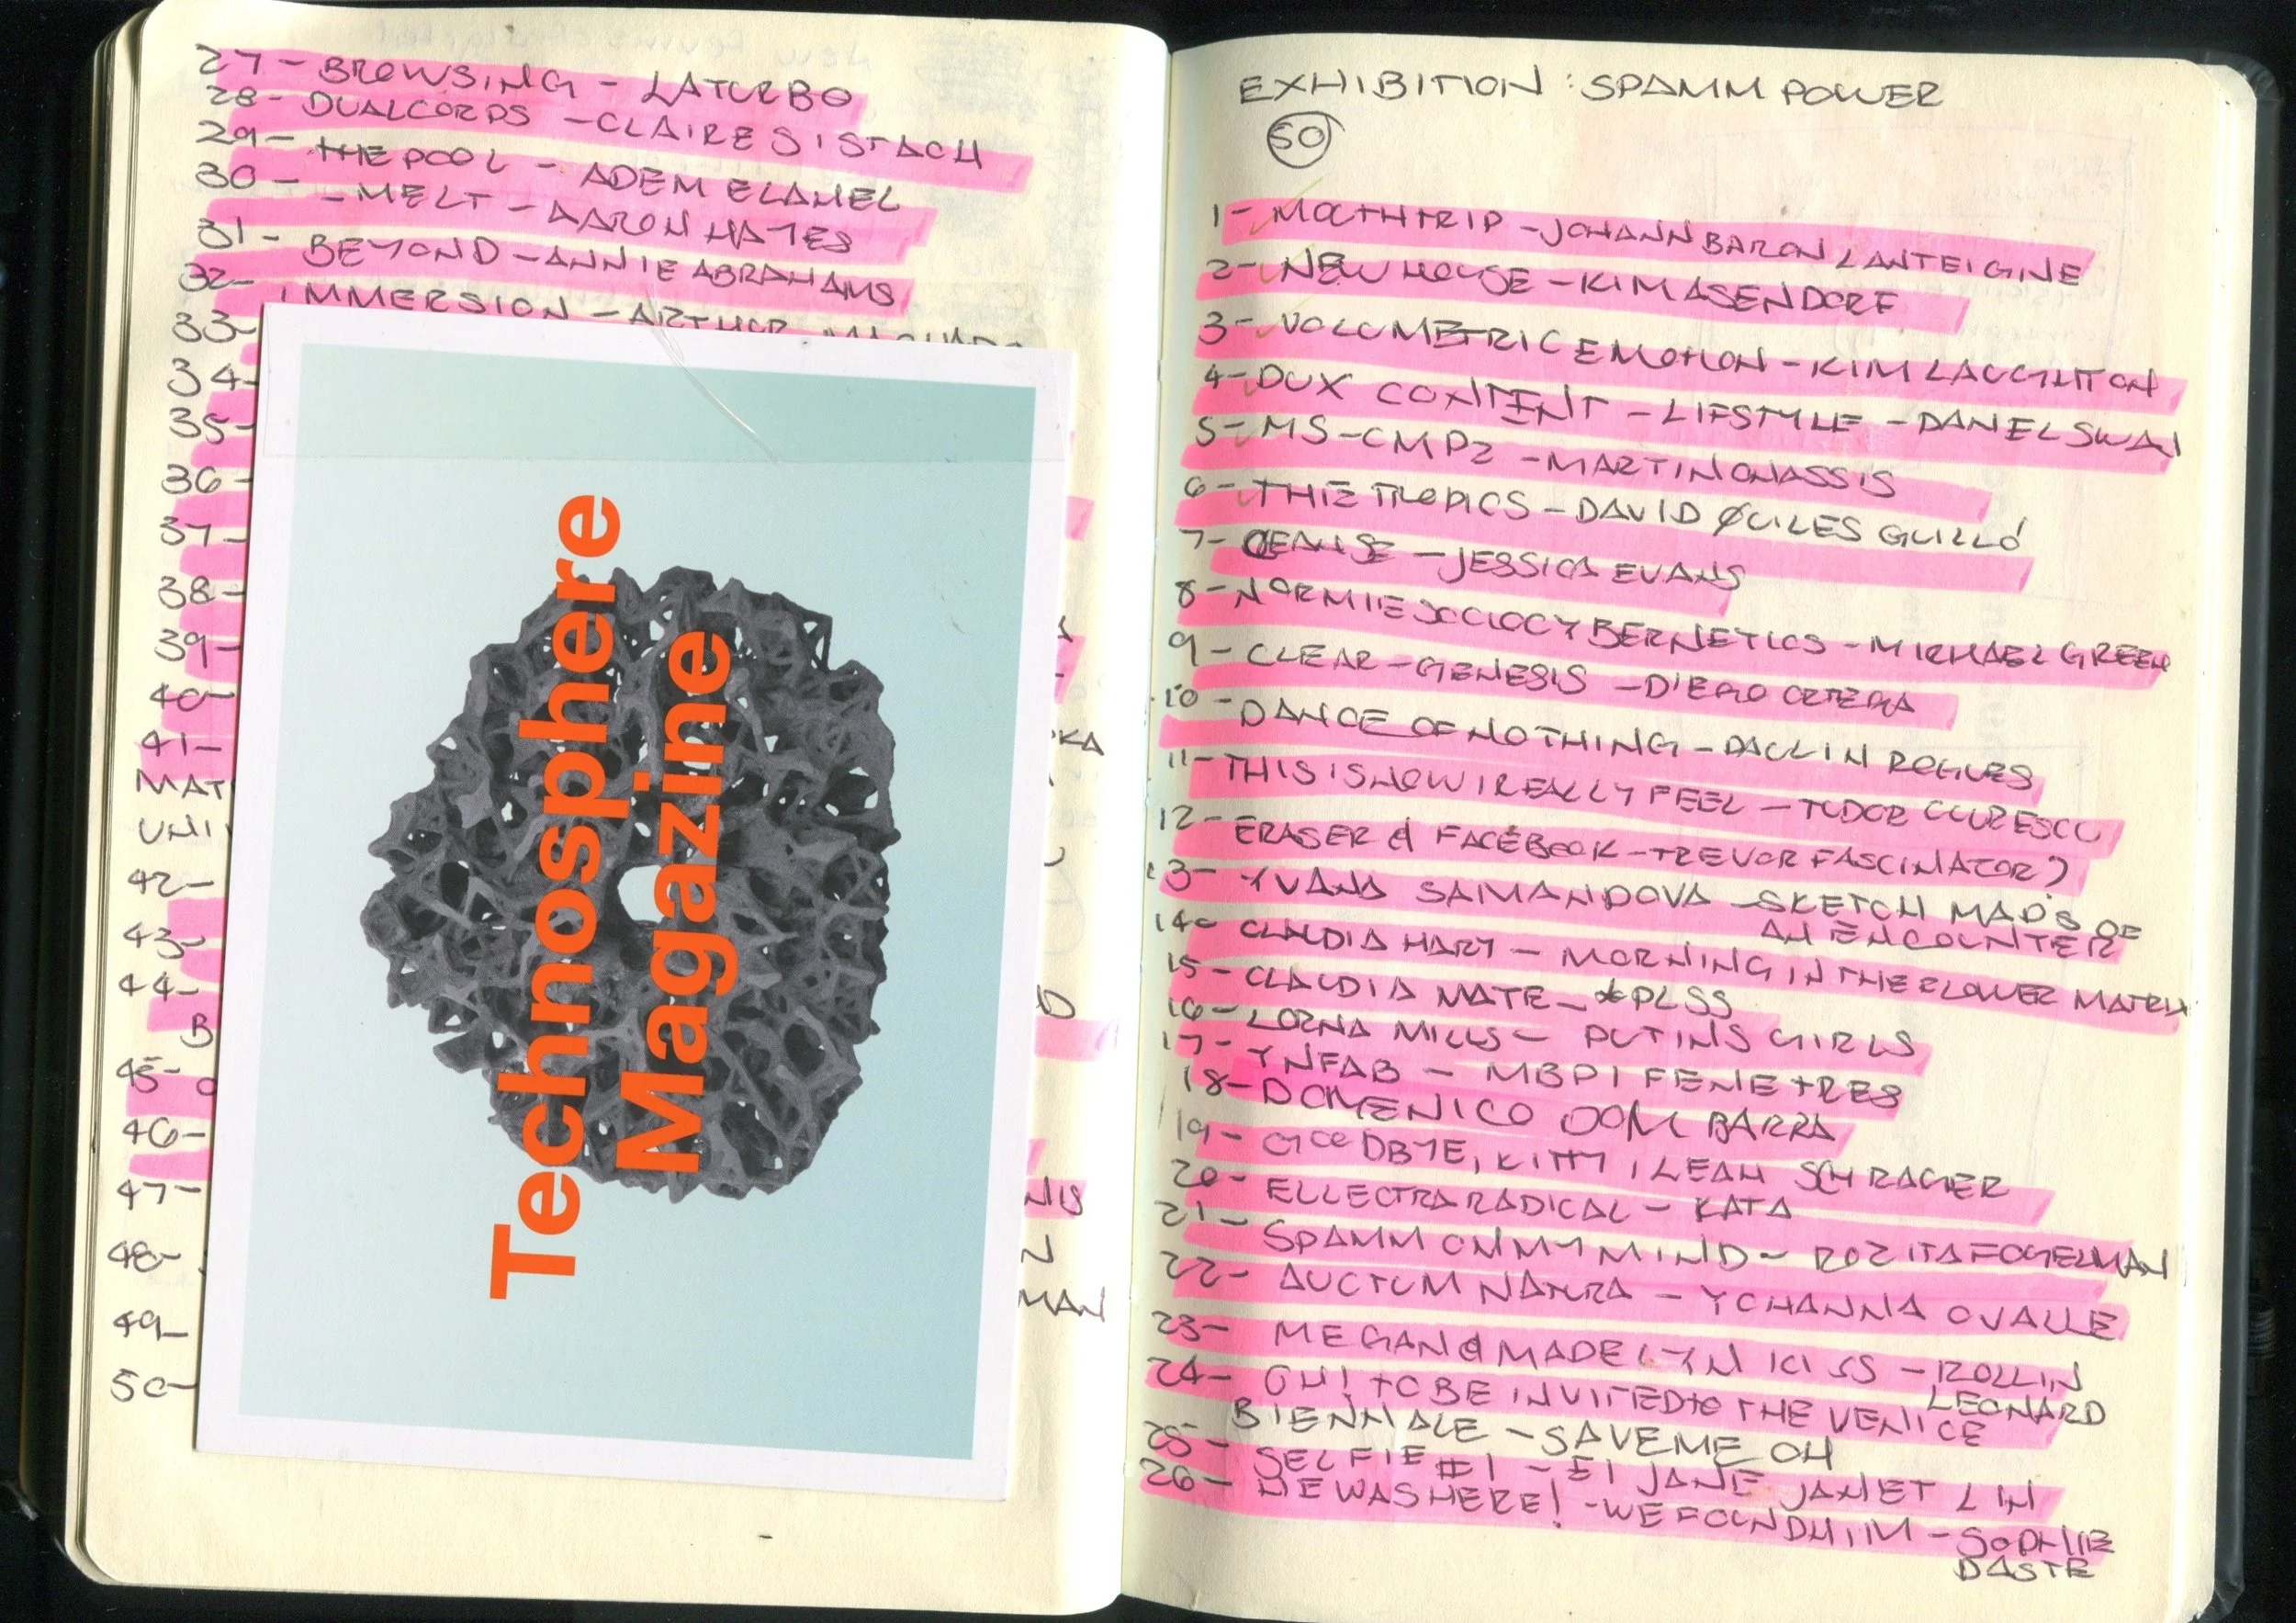 27- BROWSING - LATURBO
28- DUALCORPS - CLAIRE SISTACH
29- THE POOL - ADEM ELAHEL
30- - MELT - AARON HAYES
31- BEYOND - ANNIE ABRAHAMS
32- IMMERSION - ARTHUR MACHADO
33-
34-
35-
36-
37-
38-
39-
40-
41- KA
MAT
UNI
42-
43-
44-
B
45- O
46-
47- NIS
48- N
MAN
49-
50-
Technosphere
Magazine
EXHIBITION : SPAMM POWER
50
1- MOUTHTRIP - JOHANN BARON LANTEIGINE
2- NEW HOUSE - KIM ASENDORF
3- VOLUMETRIC EMOTION - KIM LAUGHTON
4- DUX CONTENT - LIFSTYLE - DANIEL SWAN
5- MS-CMP2 - MARTIN ONASSIS
6- THE TROPICS - DAVID QUILES GUILLÓ
7- - JESSICA EVANS
8- NORMIE SOCIOCYBERNETICS - MICHAEL GREEN
9- CLEAR - GENESIS - DIEGO ORTEGA
10- DANCE OF NOTHING - PAULIN ROGUES
11- THIS IS HOW I REALLY FEEL - TUDOR CUURESCU
12- ERASER & FACEBOOK - TREVOR FASCINATOR)
13- YVANA SAMANDOVA - SKETCH MAP'S OF
AN ENCOUNTER
14- CLAUDIA HART - MORNING IN THE FLOWER MATRIX
15- CLAUDIA MATE - *PLSS
16- LORNA MILLS - PUTINS GIRLS
17- YNFAB - MBP1 FENETRES
18- DOMENICO DOM BARRA
19- GOODBYE, KITTY, LEAH SCHRAGER
20- ELLECTRA RADICAL - KATA
21- SPAMM ON MY MIND - ROZITA FOGELMAN
22- AUCTUM NATURA - YOHANNA OVALLE
23- MEGAN & MADELYN KISS - ROLLIN
LEONARD
24- OH! TO BE INVITED TO THE VENICE
BIENNALE - SAVEME OH
25- SELFIE #1 - EI JANE JANET LIN
26- HE WAS HERE! - WE FOUND HIM - SOPHIE
DASTE